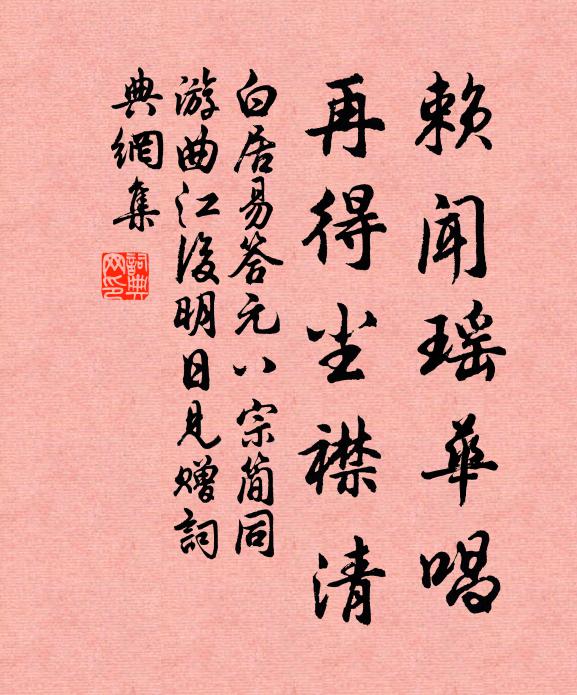 赖闻瑶华唱
再得尘襟清
白居易答元八宗简同
游曲江后明日见赠词
典网集
词典
网印